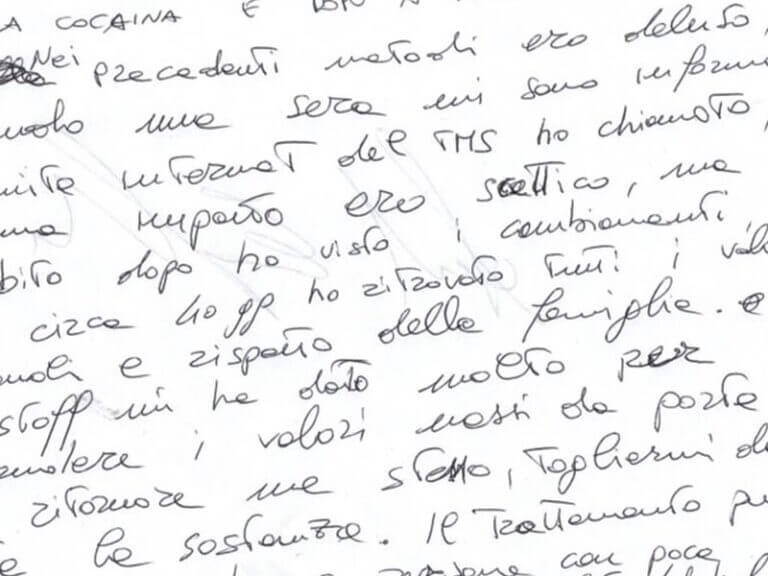 LA COCAINA E
Nei precedenti metodi ero deluso,
una sera mi sono inform
internet del TMS ho chiamato,
impatto ero scettico, ma
bito dopo ho visto i cambiamenti,
circa 40 gg ho ritrovato tutti i valo
e rispetto della famiglia. e
staff mi ha dato molto per
i valori messi da parte
ritornare me stesso, togliermi d
la sostanza. Il trattamento pu
con poca